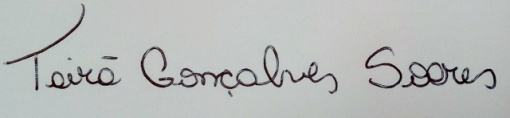 Tairã Gonçalves Soares